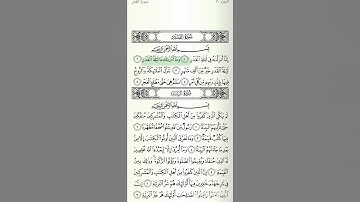 سورة القدر
الجزء ٣٠
سُورَةُ القَدْرِ
بِسْمِ اللَّهِ الرَّحْمَٰنِ الرَّحِيمِ
إِنَّا أَنزَلْنَاهُ فِي لَيْلَةِ الْقَدْرِ ١ وَمَا أَدْرَاكَ مَا لَيْلَةُ الْقَدْرِ ٢
لَيْلَةُ الْقَدْرِ خَيْرٌ مِّنْ أَلْفِ شَهْرٍ ٣ تَنَزَّلُ الْمَلَائِكَةُ وَالرُّوحُ
فِيهَا بِإِذْنِ رَبِّهِم مِّن كُلِّ أَمْرٍ ٤ سَلَامٌ هِيَ حَتَّىٰ مَطْلَعِ الْفَجْرِ ٥
سُورَةُ البَيِّنَةِ
بِسْمِ اللَّهِ الرَّحْمَٰنِ الرَّحِيمِ
لَمْ يَكُنِ الَّذِينَ كَفَرُوا مِنْ أَهْلِ الْكِتَابِ وَالْمُشْرِكِينَ مُنفَكِّينَ
حَتَّىٰ تَأْتِيَهُمُ الْبَيِّنَةُ ١ رَسُولٌ مِّنَ اللَّهِ يَتْلُو صُحُفًا مُّطَهَّرَةً ٢
فِيهَا كُتُبٌ قَيِّمَةٌ ٣ وَمَا تَفَرَّقَ الَّذِينَ أُوتُوا الْكِتَابَ إِلَّا مِن بَعْدِ
مَا جَاءَتْهُمُ الْبَيِّنَةُ ٤ وَمَا أُمِرُوا إِلَّا لِيَعْبُدُوا اللَّهَ مُخْلِصِينَ
لَهُ الدِّينَ حُنَفَاءَ وَيُقِيمُوا الصَّلَاةَ وَيُؤْتُوا الزَّكَاةَ وَذَٰلِكَ دِينُ
الْقَيِّمَةِ ٥ إِنَّ الَّذِينَ كَفَرُوا مِنْ أَهْلِ الْكِتَابِ وَالْمُشْرِكِينَ
فِي نَارِ جَهَنَّمَ خَالِدِينَ فِيهَا أُولَٰئِكَ هُمْ شَرُّ الْبَرِيَّةِ ٦
إِنَّ الَّذِينَ آمَنُوا وَعَمِلُوا الصَّالِحَاتِ أُولَٰئِكَ هُمْ خَيْرُ الْبَرِيَّةِ ٧